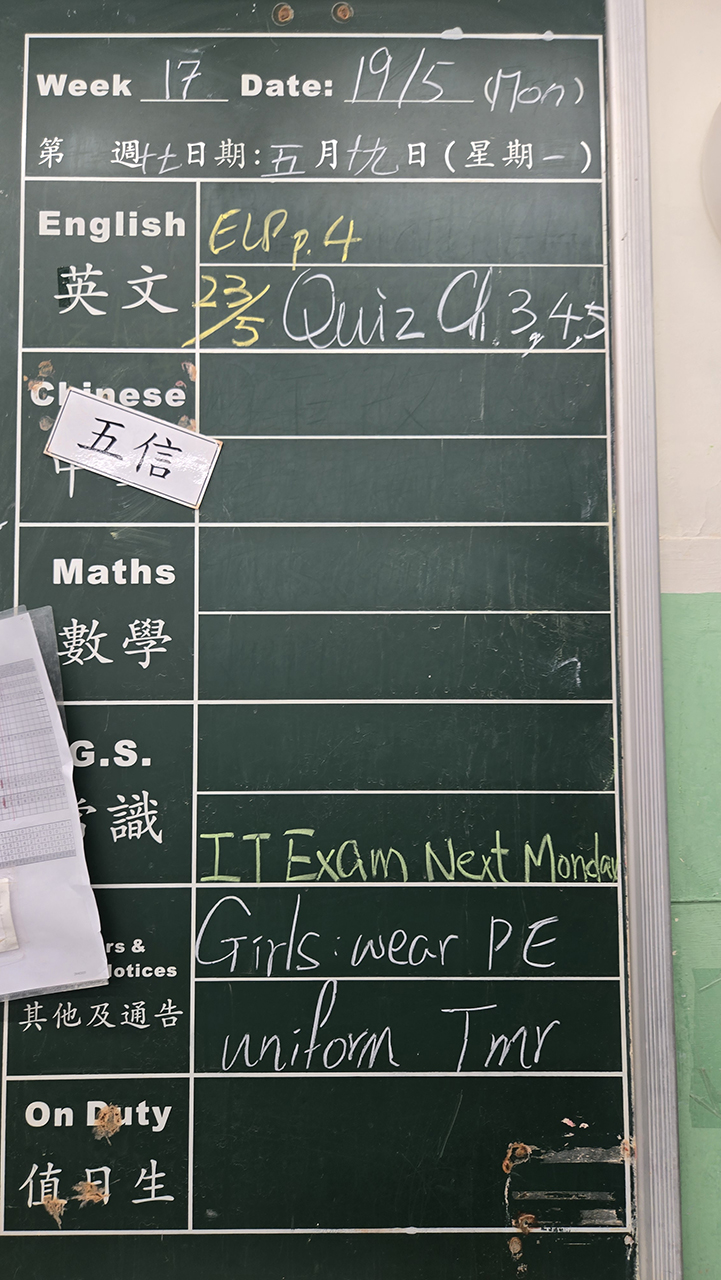 Week 17 Date: 19/5 (Mon)
第 週十七日期:五月十九日(星期一)
English
ELP p. 4
英文
23/5 Quiz Ch. 3,4,5
Chinese
五信
Maths
數學
G.S.
識
IT Exam Next Monday
Girls: wear PE
rs &
Notices
其他及通告
uniform Tmr
On Duty
值日生